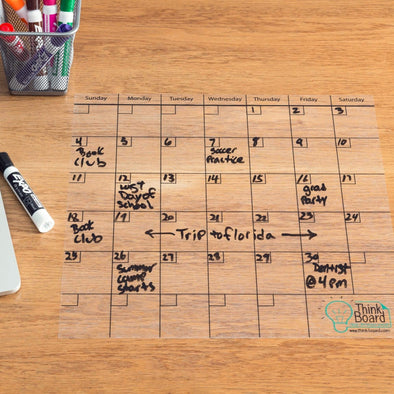 Sunday Monday Tuesday Wednesday Thursday Friday Saturday
1 2 3
4 5 6 7 8 9 10
Book Club
Soccer Practice
11 12 13 14 15 16 17
Last Day of School
grad Party
18 19 20 21 22 23 24
Book Club
Trip to florida
25 26 27 28 29 30
Summer camp starts
Dentist @ 4 pm
EXPO
Think Board
www.think-board.com